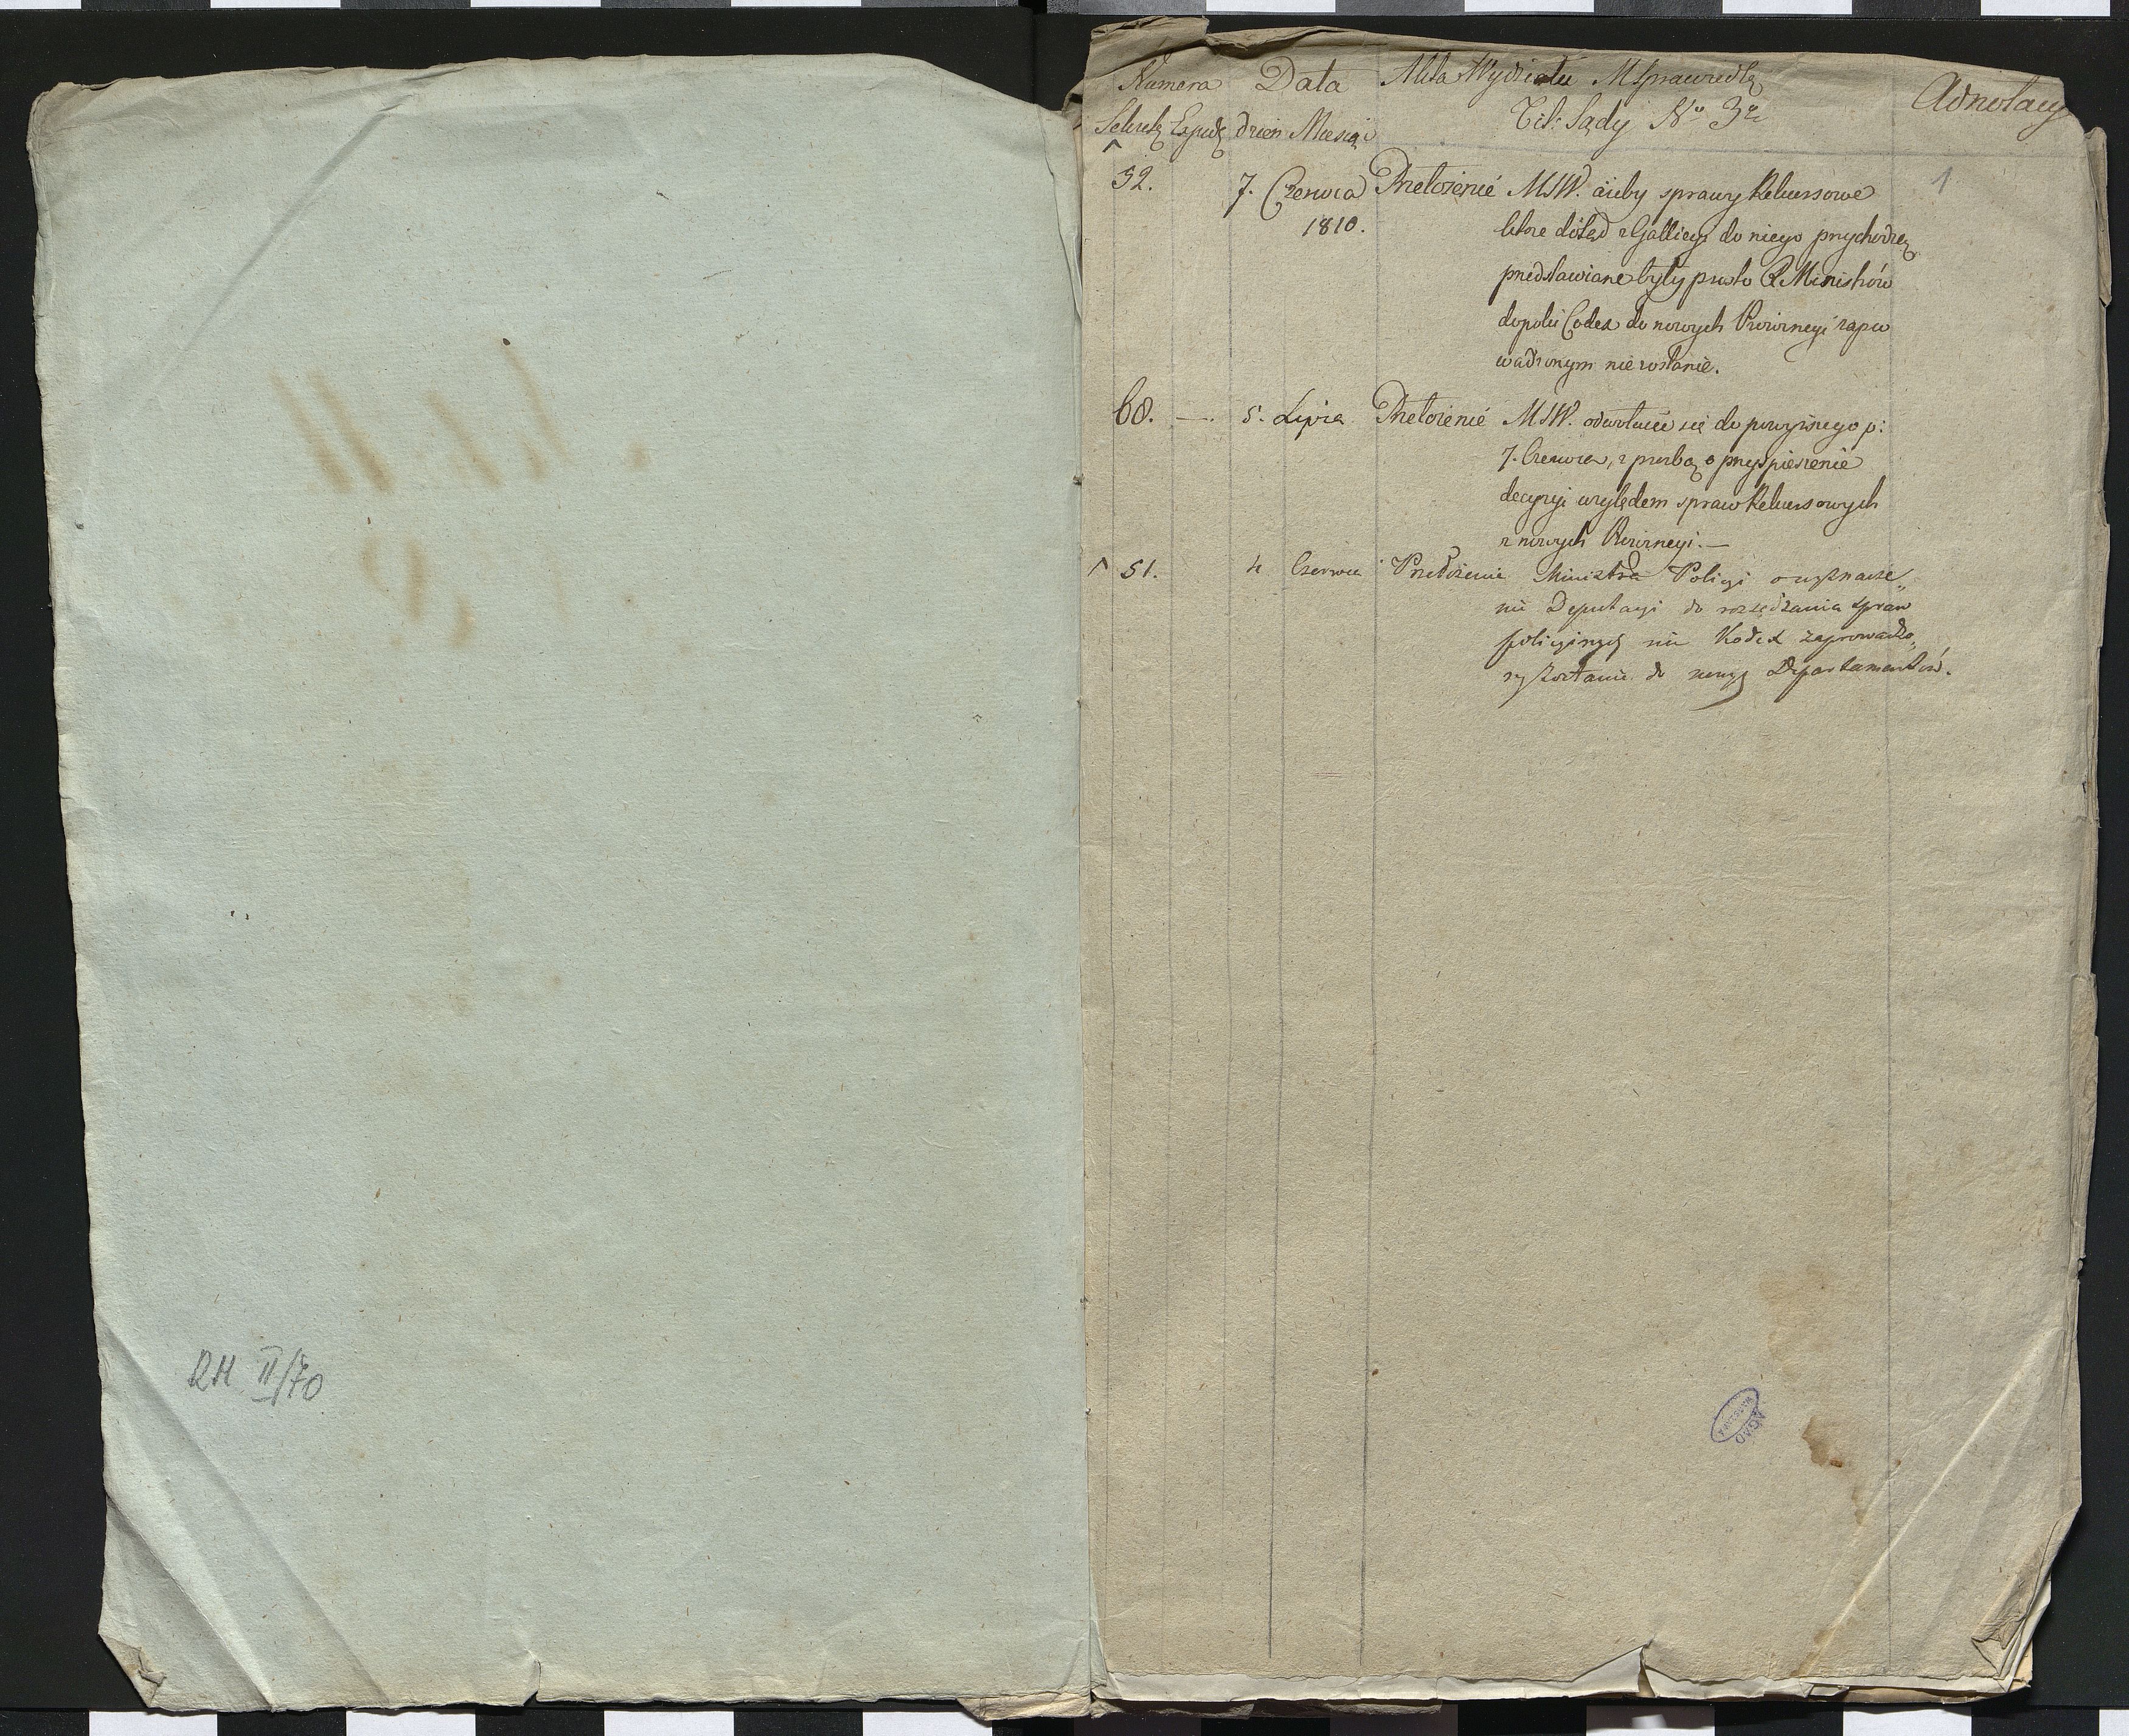 RM II/70
Numera Data Akta Wydziału MSprawiedlą Adnotacye
dzień Miesiąc Tit: Sądy No 3o
1
52. 7. Czerwca Przełożenié MSW. ażeby sprawy Rekursowe
1810. które dotąd z Gallicyi do niego przychodzą
przedstawiane były prosto R Ministrów
dopoki Codex do nowych Prowincyi zapro
wadzonym nie zostanie.
68. — 5. Lipca Przełożenié MSW. odwołuiée się do powyższego p:
7. Czerwca, z prośbą o przyspieszenie
decyzyi względem spraw Rekursowych
z nowych Prowincyi. —
51. 4 Czerwca Przełożenie Ministra Policyi o wyznacze„
niu Deputacyi do rozsądzania spraw
policyinych nim Kodex zaprowadzo„
ny zostanie do nowych Departamentów.
AGAD